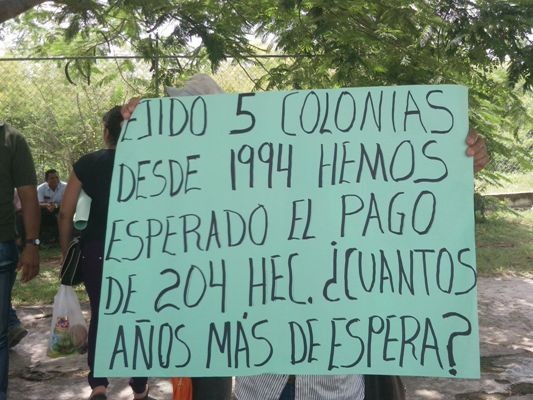 EJIDO 5 COLONIAS
DESDE 1994 HEMOS
ESPERADO EL PAGO
DE 204 HEC. ¿CUANTOS
AÑOS MÁS DE ESPERA?